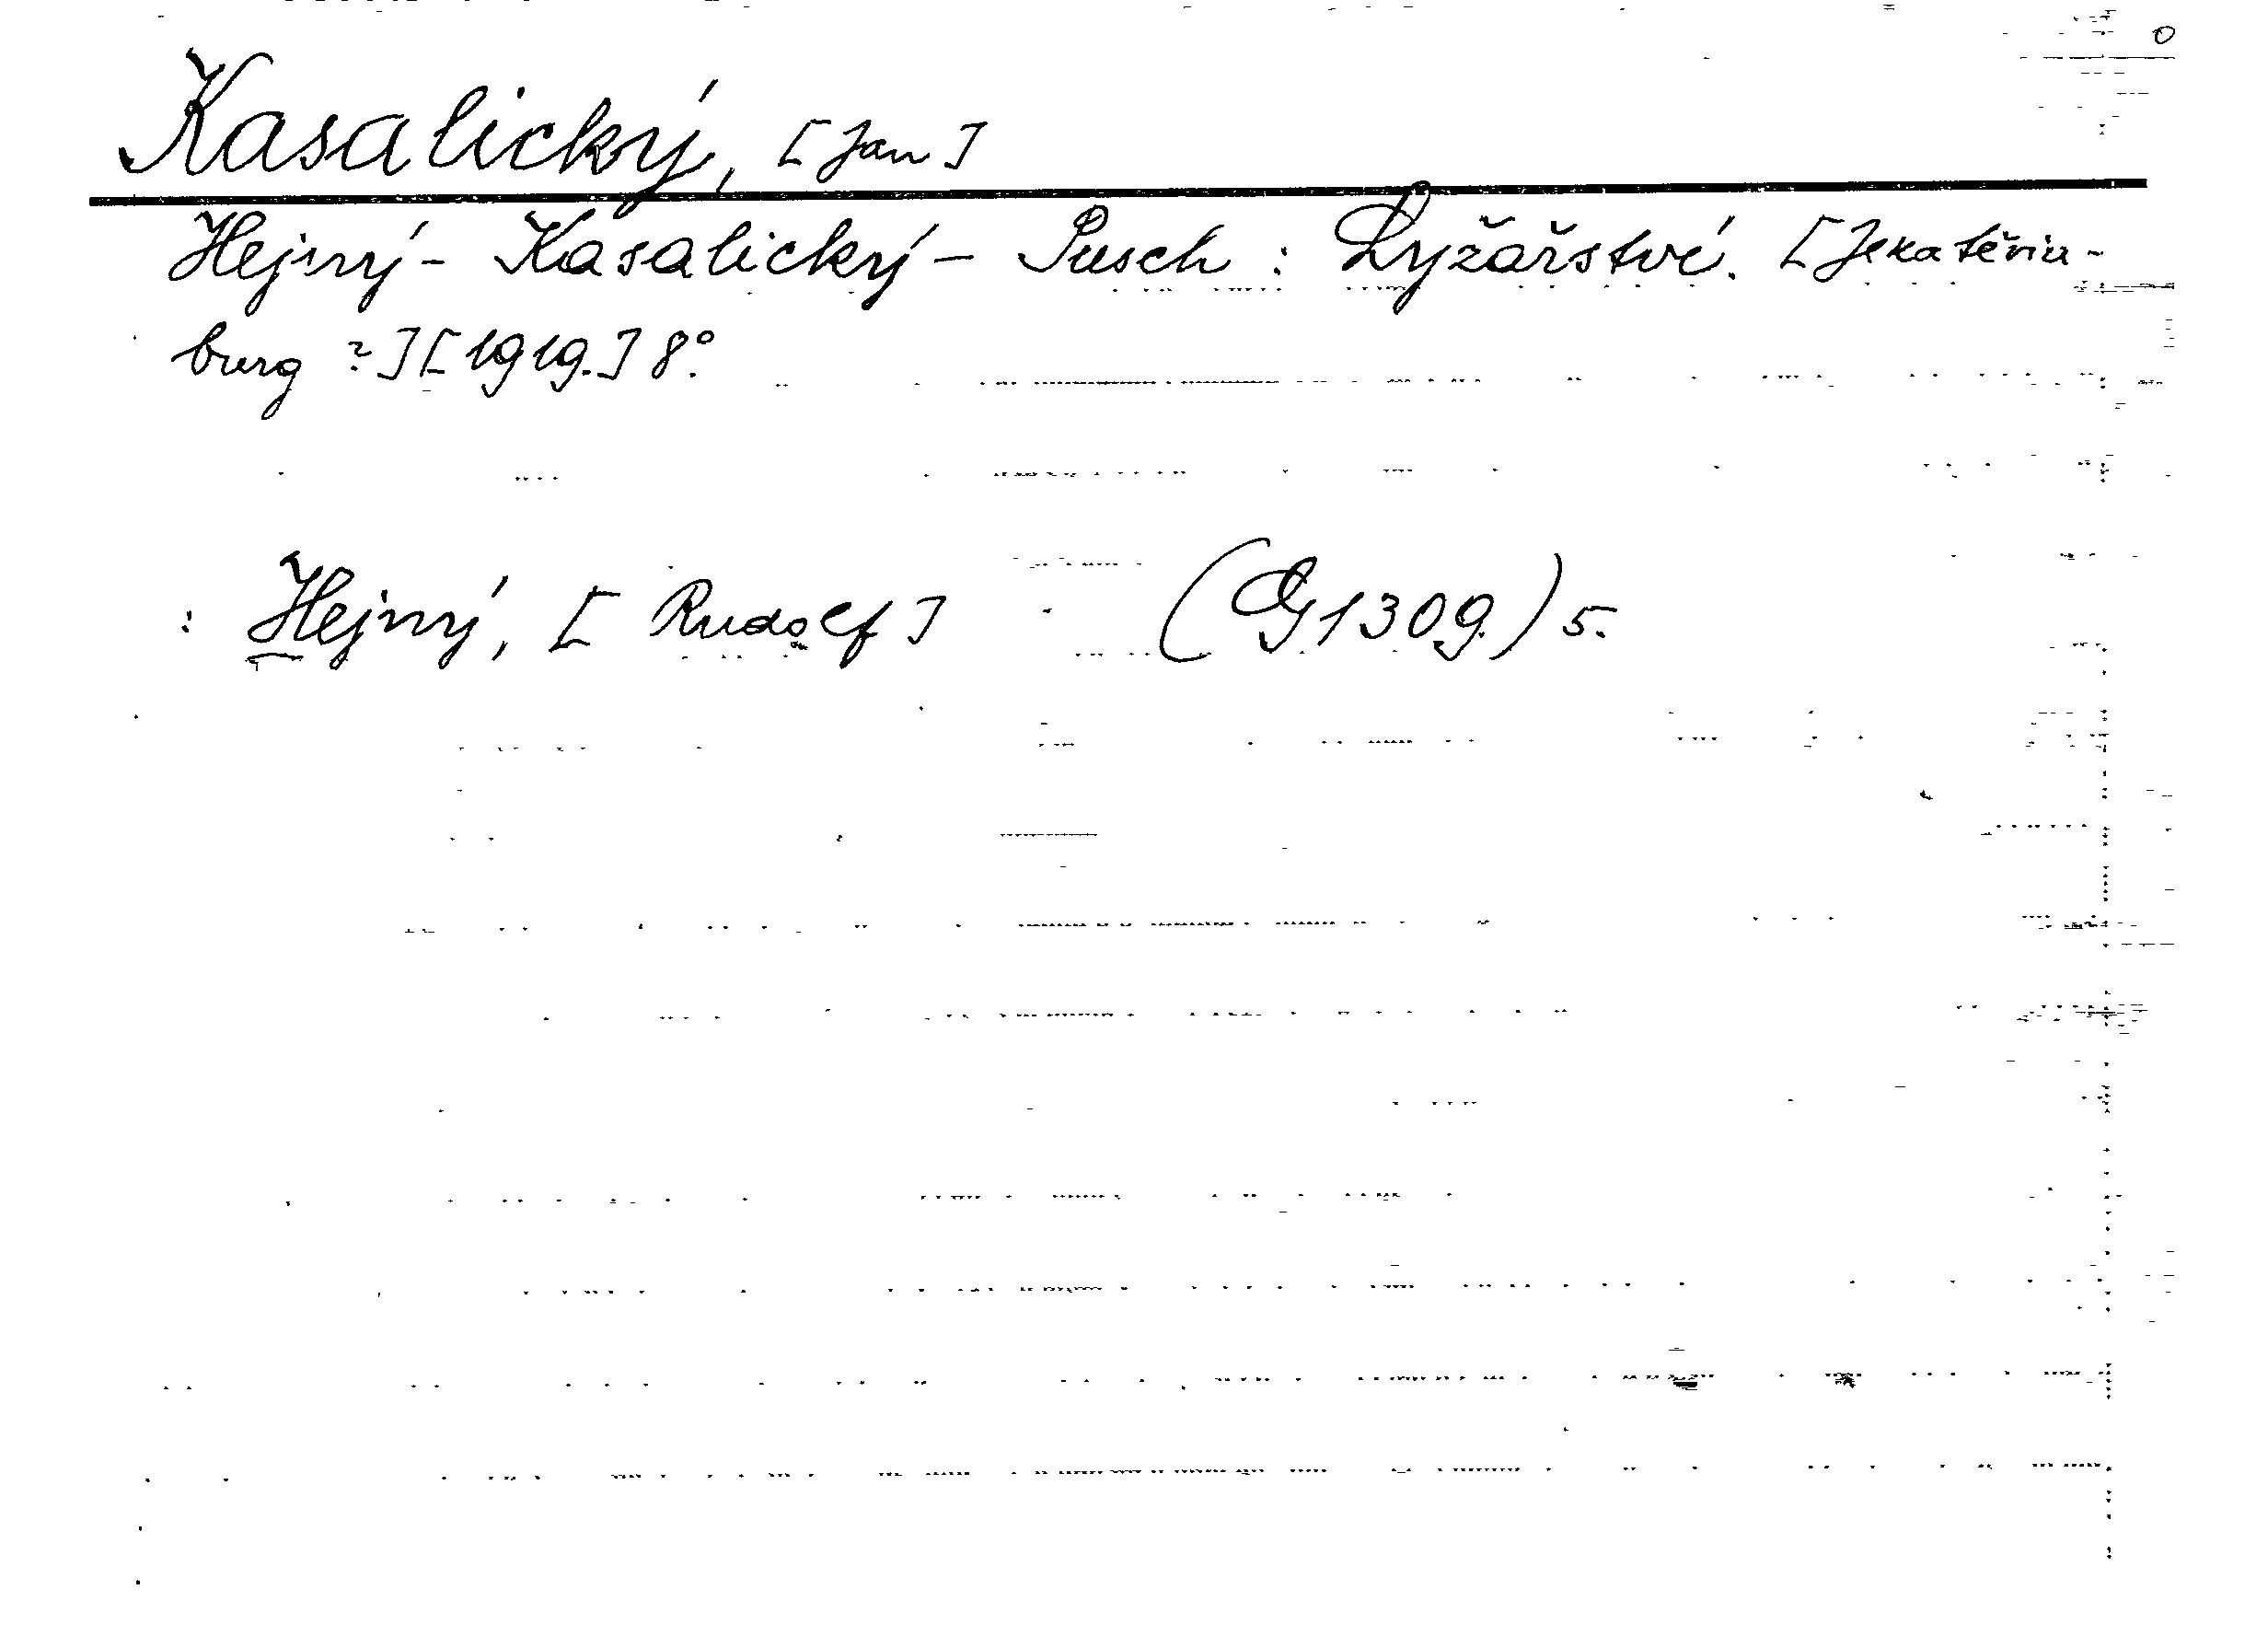 Kasalický, [Jan]
Hejný - Kasalický - Pusch : Lyžařství. [Jekatěrin-
burg ?] [1919.] 8°.
: Hejný, [Rudolf] (G 1309.) 5.